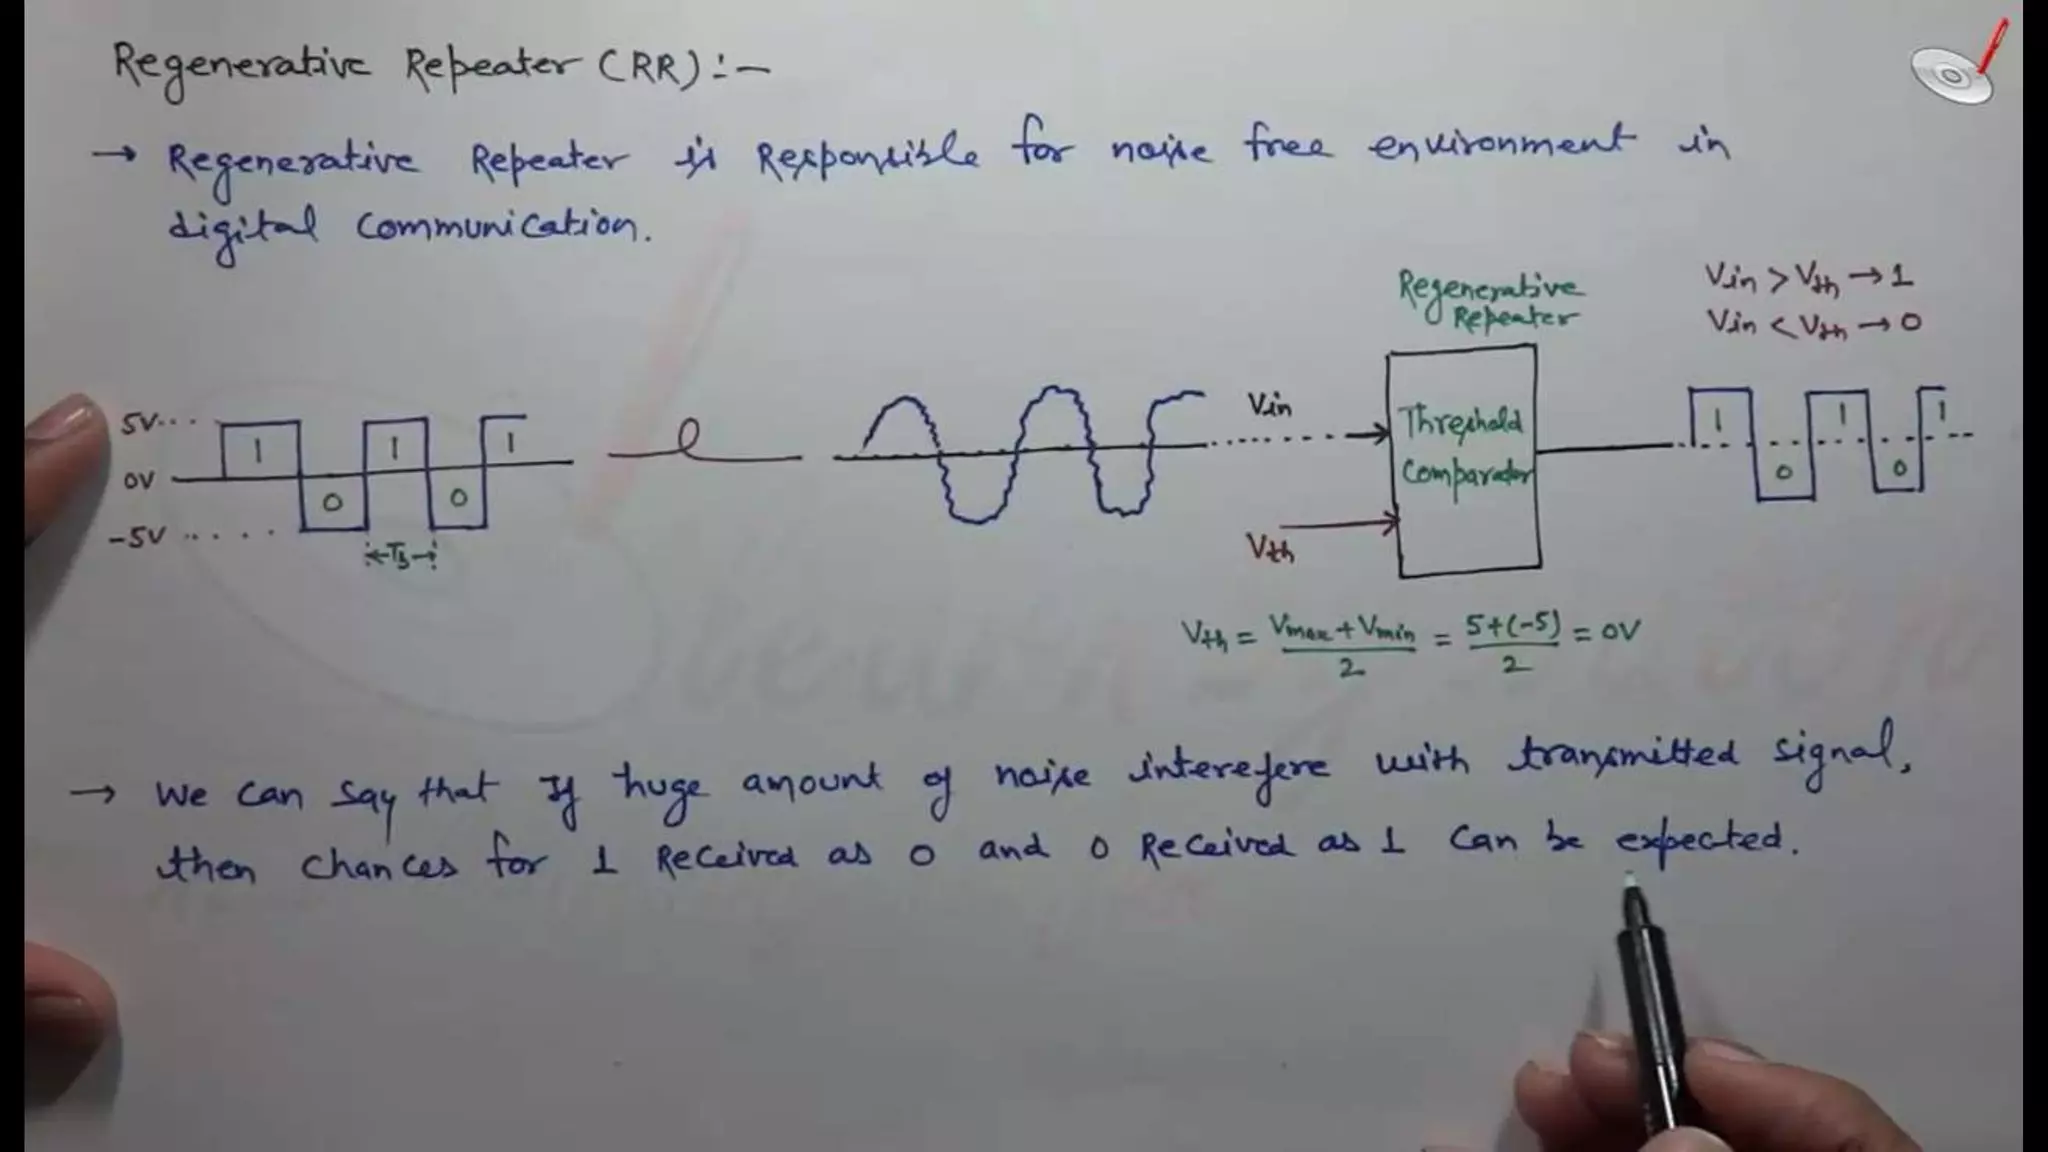 Regenerative Repeater (RR) :-
→ Regenerative Repeater is Responsible for noise free environment in
digital communication.
Regenerative
Repeater
Vin > Vth → 1
Vin < Vth → 0
5V
0V
-5V
1 0 1 0 1
←Tb→
Vin
Vth
Threshold
Comparator
1 0 1 0 1
Vth = Vmax + Vmin / 2 = 5+(-5) / 2 = 0V
→ We can say that If huge amount of noise interefere with transmitted signal,
then chances for 1 Received as 0 and 0 Received as 1 can be expected.